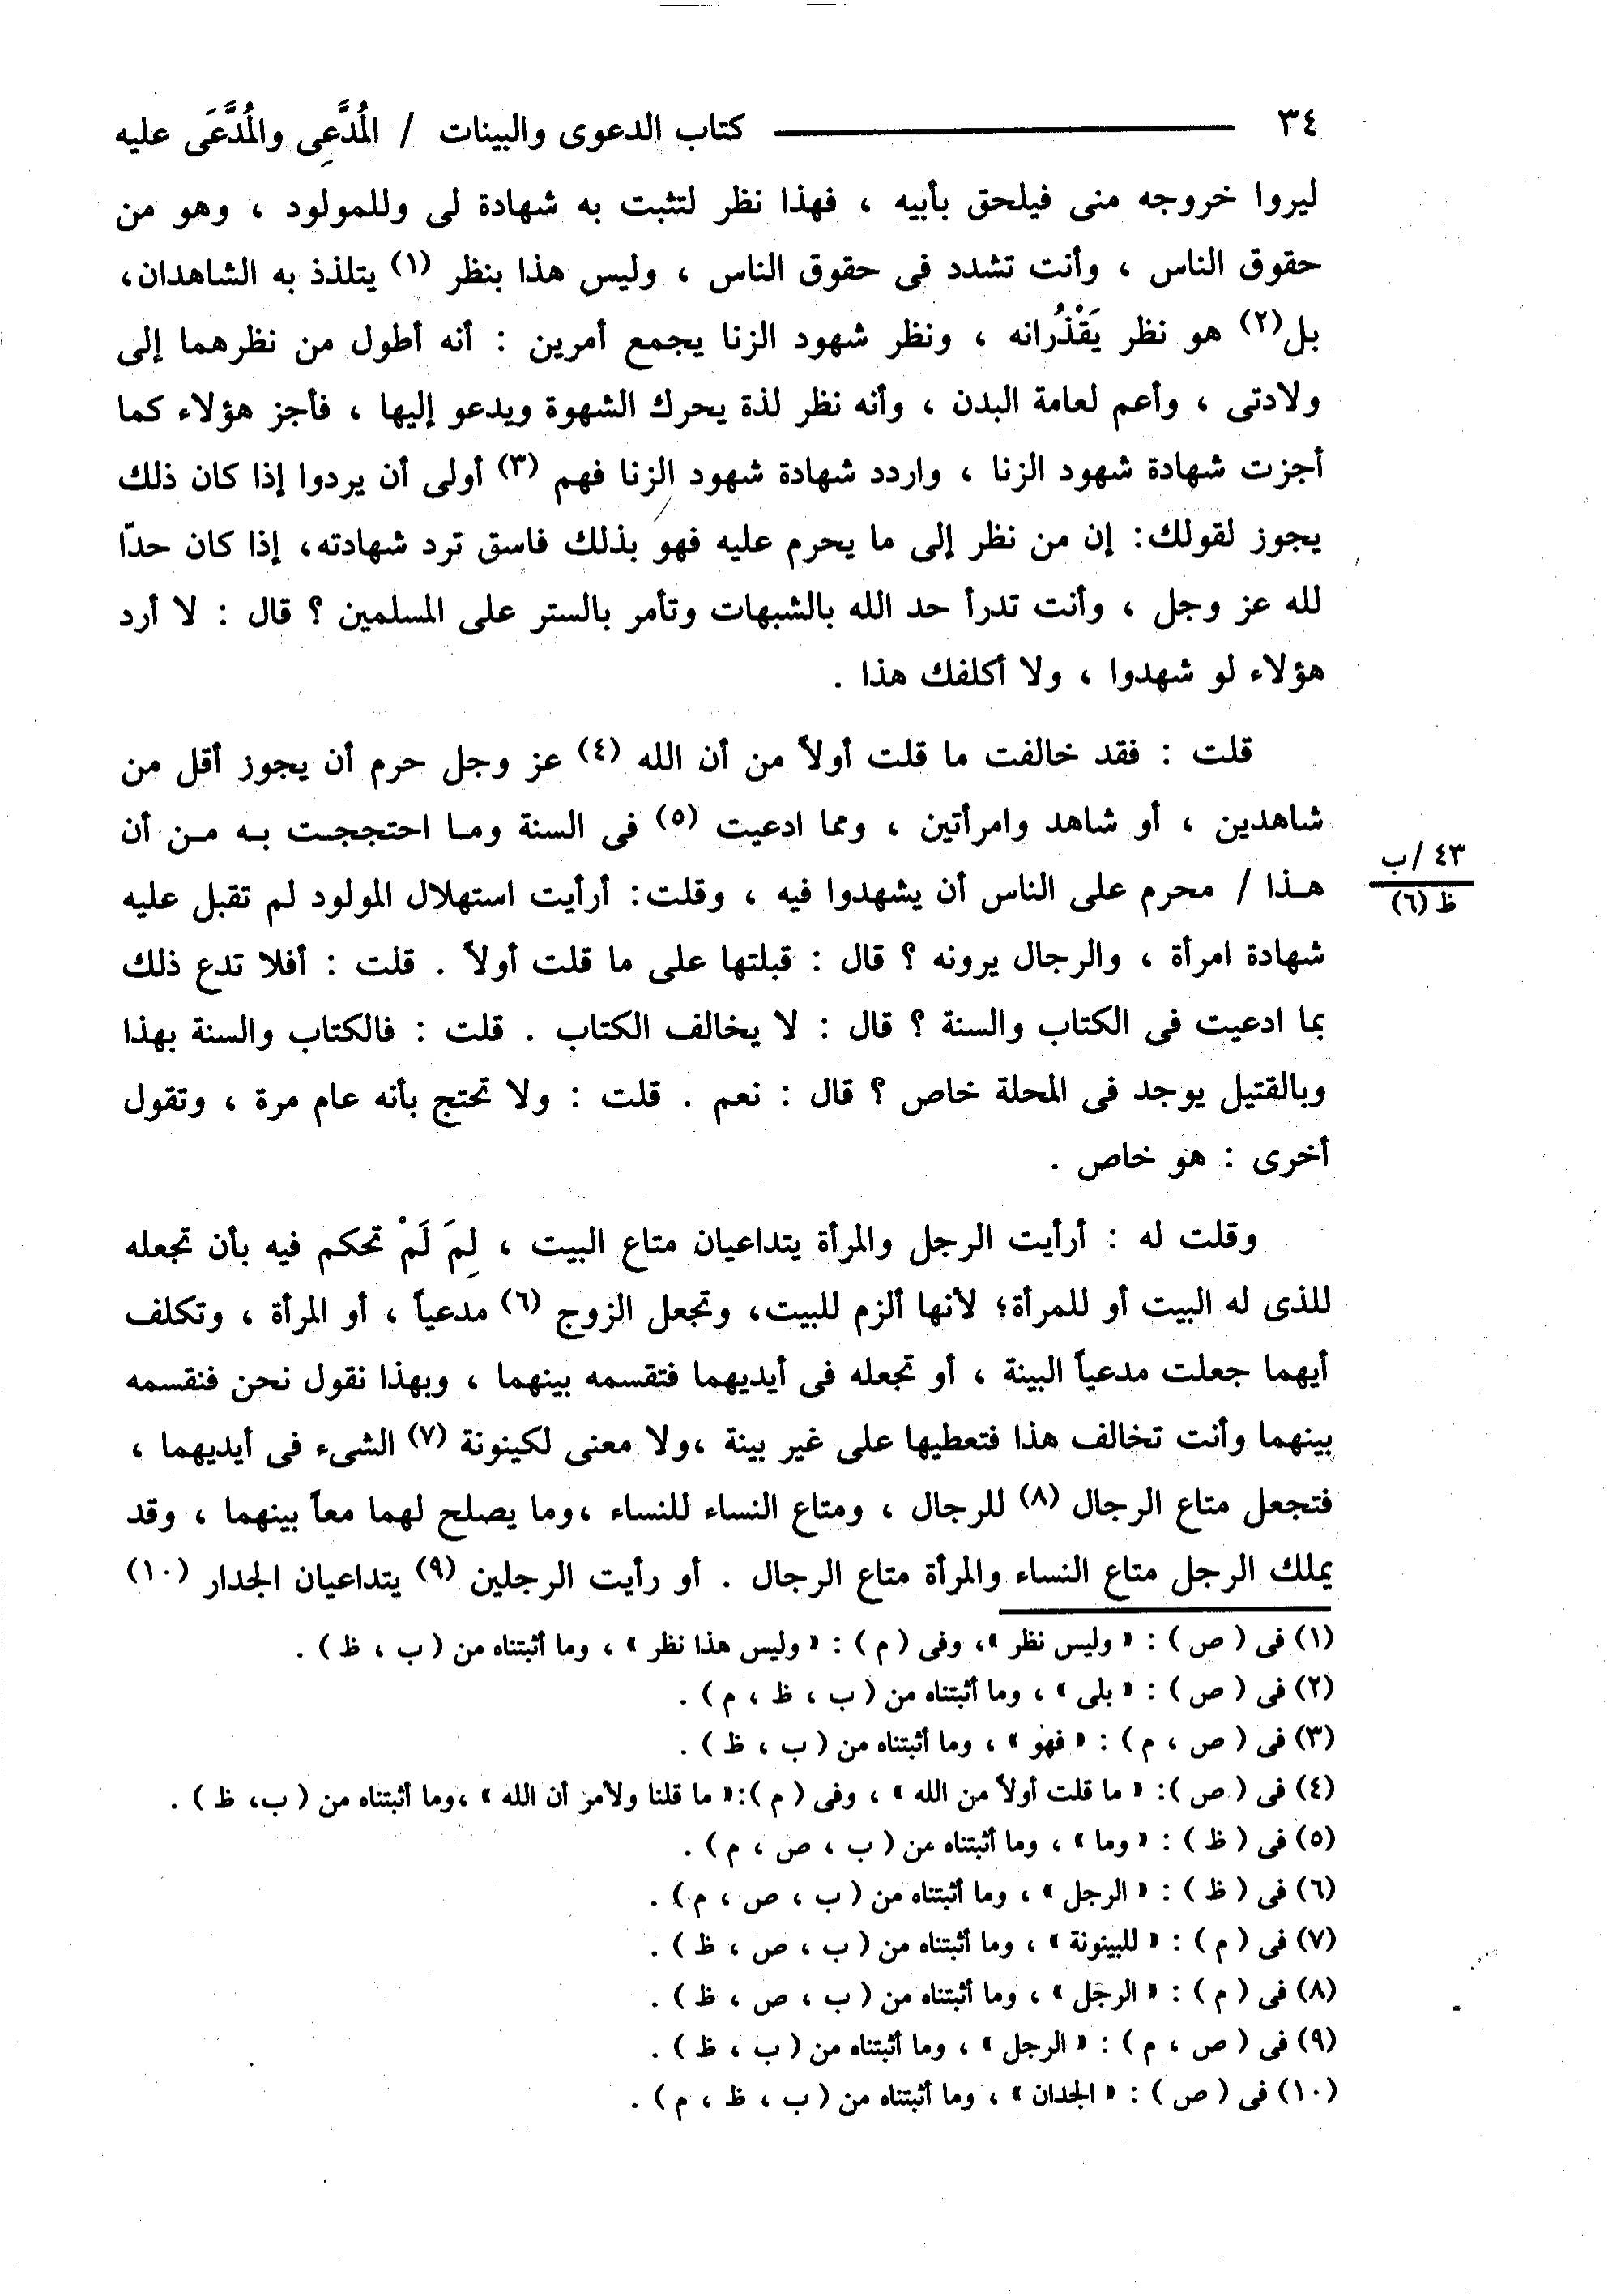 ٣٤ ــــــــــــــــ كتاب الدعوى والبينات / المُدَّعِى والمُدَّعَى عليه
ليروا خروجه منى فيلحق بأبيه ، فهذا نظر لتثبت به شهادة لى وللمولود ، وهو من
حقوق الناس ، وأنت تشدد فى حقوق الناس ، وليس هذا بنظر (١) يتلذذ به الشاهدان،
بل(٢) هو نظر يَقْذُرانه ، ونظر شهود الزنا يجمع أمرين : أنه أطول من نظرهما إلى
ولادتى ، وأعم لعامة البدن ، وأنه نظر لذة يحرك الشهوة ويدعو إليها ، فأجز هؤلاء كما
أجزت شهادة شهود الزنا ، واردد شهادة شهود الزنا فهم (٣) أولى أن يردوا إذا كان ذلك
يجوز لقولك: إن من نظر إلى ما يحرم عليه فهو بذلك فاسق ترد شهادته، إذا كان حدّا
لله عز وجل ، وأنت تدرأ حد الله بالشبهات وتأمر بالستر على المسلمين ؟ قال : لا أرد
هؤلاء لو شهدوا ، ولا أكلفك هذا .
قلت : فقد خالفت ما قلت أولاً من أن الله (٤) عز وجل حرم أن يجوز أقل من
شاهدين ، أو شاهد وامرأتين ، ومما ادعيت (٥) فى السنة وما احتججت به من أن
هذا / محرم على الناس أن يشهدوا فيه ، وقلت: أرأيت استهلال المولود لم تقبل عليه
٤٣ /ب
ظ (٦)
شهادة امرأة ، والرجال يرونه ؟ قال : قبلتها على ما قلت أولاً . قلت : أفلا تدع ذلك
بما ادعيت فى الكتاب والسنة ؟ قال : لا يخالف الكتاب . قلت : فالكتاب والسنة بهذا
وبالقتيل يوجد فى المحلة خاص ؟ قال : نعم . قلت : ولا تحتج بأنه عام مرة ، وتقول
أخرى : هو خاص .
وقلت له : أرأيت الرجل والمرأة يتداعيان متاع البيت ، لِمَ لَمْ تحكم فيه بأن تجعله
للذى له البيت أو للمرأة؛ لأنها ألزم للبيت، وتجعل الزوج (٦) مدعياً ، أو المرأة ، وتكلف
أيهما جعلت مدعياً البينة ، أو تجعله فى أيديهما فتقسمه بينهما ، وبهذا نقول نحن فنقسمه
بينهما وأنت تخالف هذا فتعطيها على غير بينة ،ولا معنى لكينونة (٧) الشىء فى أيديهما ،
فتجعل متاع الرجال (٨) للرجال ، ومتاع النساء للنساء ،وما يصلح لهما معاً بينهما ، وقد
يملك الرجل متاع النساء والمرأة متاع الرجال . أو رأيت الرجلين (٩) يتداعيان الجدار (١٠)
(١) فى ( ص ) : « وليس نظر »، وفى ( م ) : « وليس هذا نظر » ، وما أثبتناه من ( ب ، ظ ) .
(٢) فى ( ص ) : « بلى » ، وما أثبتناه من ( ب ، ظ ، م ) .
(٣) فى ( ص ، م ) : « فهو » ، وما أثبتناه من ( ب ، ظ ) .
(٤) فى ( ص ): « ما قلت أولاً من الله » ، وفى ( م ):« ما قلنا ولأمر أن الله » ،وما أثبتناه من ( ب، ظ ) .
(٥) فى ( ظ ) : « وما » ، وما أثبتناه من ( ب ، ص ، م ) .
(٦) فى ( ظ ) : « الرجل » ، وما أثبتناه من ( ب ، ص ، م ) .
(٧) فى ( م ) : « للبينونة » ، وما أثبتناه من ( ب ، ص ، ظ ) .
(٨) فى ( م ) : « الرجل » ، وما أثبتناه من ( ب ، ص ، ظ ) .
(٩) فى ( ص ، م ) : « الرجل » ، وما أثبتناه من ( ب ، ظ ) .
(١٠) فى ( ص ) : « الجدان » ، وما أثبتناه من ( ب ، ظ ، م ) .